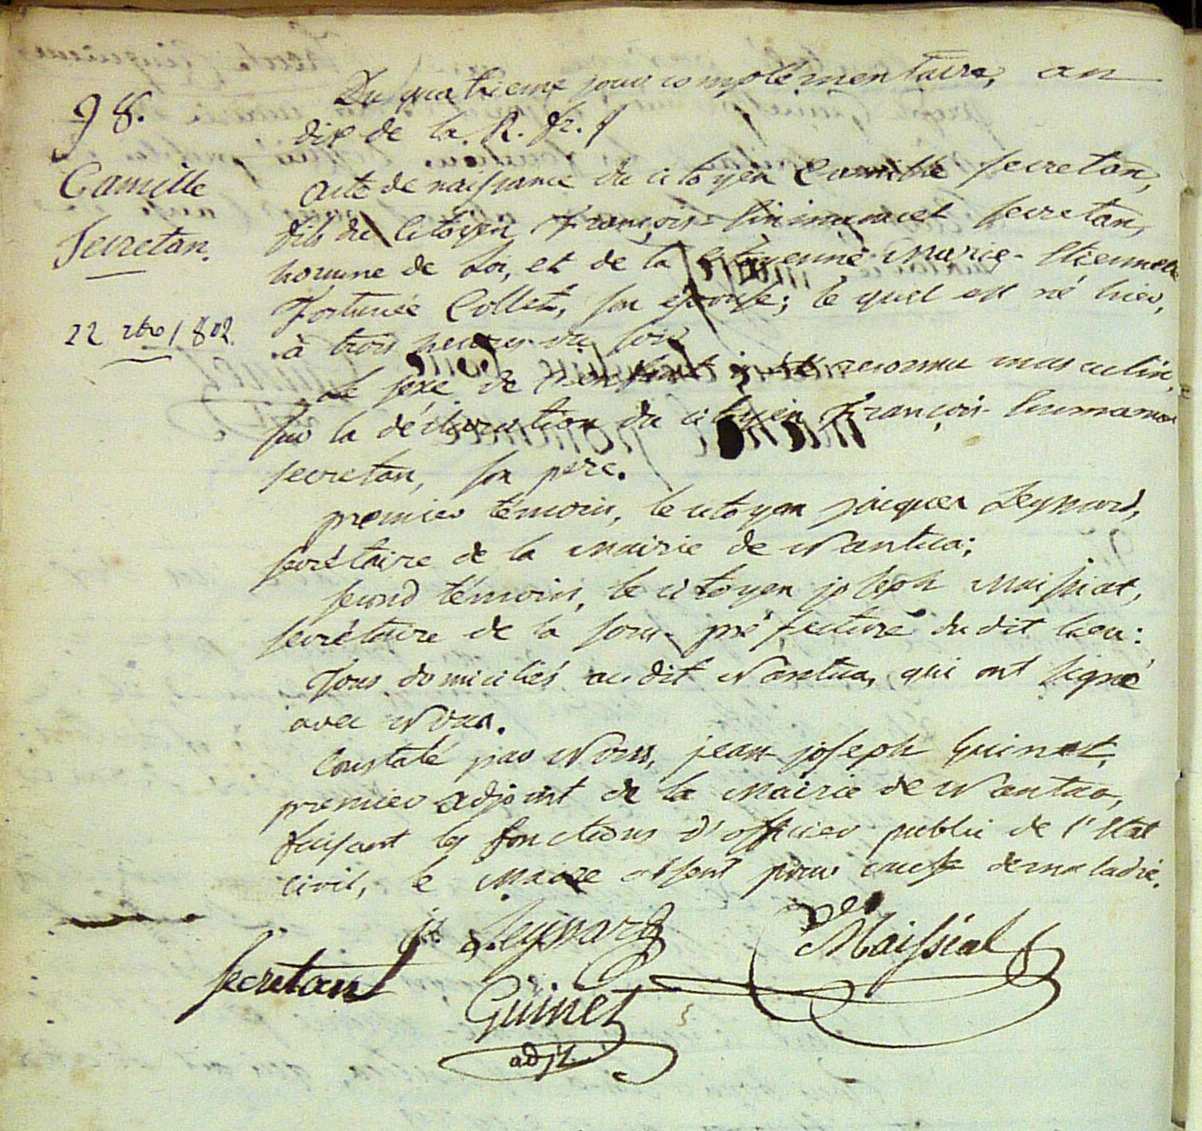 98.
Camille
Secretan.
22 7bre 1802.
Du quatrieme jour complémentaire, an
dix de la R. fr.
Acte de naissance du citoyen Camille Secretan,
fils du Citoyen François- Secretan,
homme de Loi, et de la Citoyenne Marie- Etiennette
Fortunée Collet, son épouse; le quel est né hier,
à trois heures du soir
Le sexe de l'enfant a été reconnu masculin,
sur la déclaration du citoyen François-
Secretan, son père.
premier témoin, le citoyen jacques Leymard,
secrétaire de la Mairie de Nantua;
second témoin, le citoyen joseph Maissiat,
secrétaire de la sous-préfecture du dit lieu:
Tous domiciliés audit Nantua, qui ont signé
avec Nous.
Constaté par Nous, jean joseph Guinet,
premier adjoint de la Mairie de Nantua,
faisant les fonctions d'officier public de l'Etat
civil, le Maire absent pour cause de maladie.
Leymard
Maissiat
Secretan
Guinet
adjt.